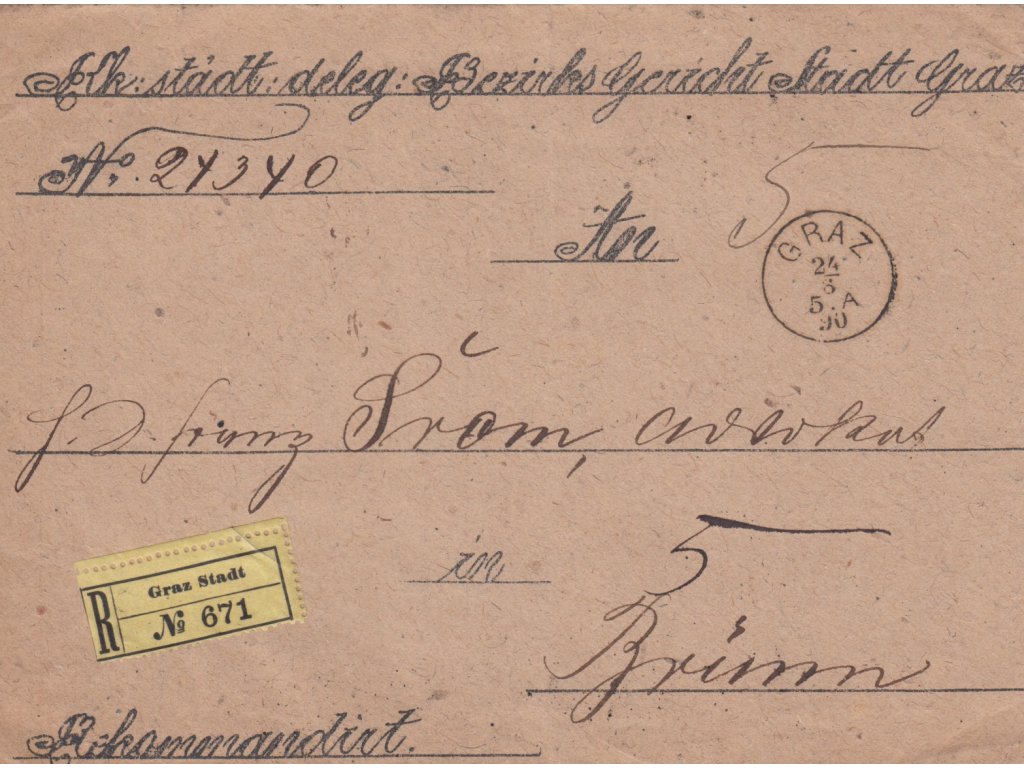 Kk: städt: deleg: Bezirks Gericht Stadt Graz
No. 24340
An
5
GRAZ
24
6
5. A
90
H. D. Franz Šrom, Advokat
in
5
Brünn
R
Graz Stadt
№ 671
Rekommandirt.